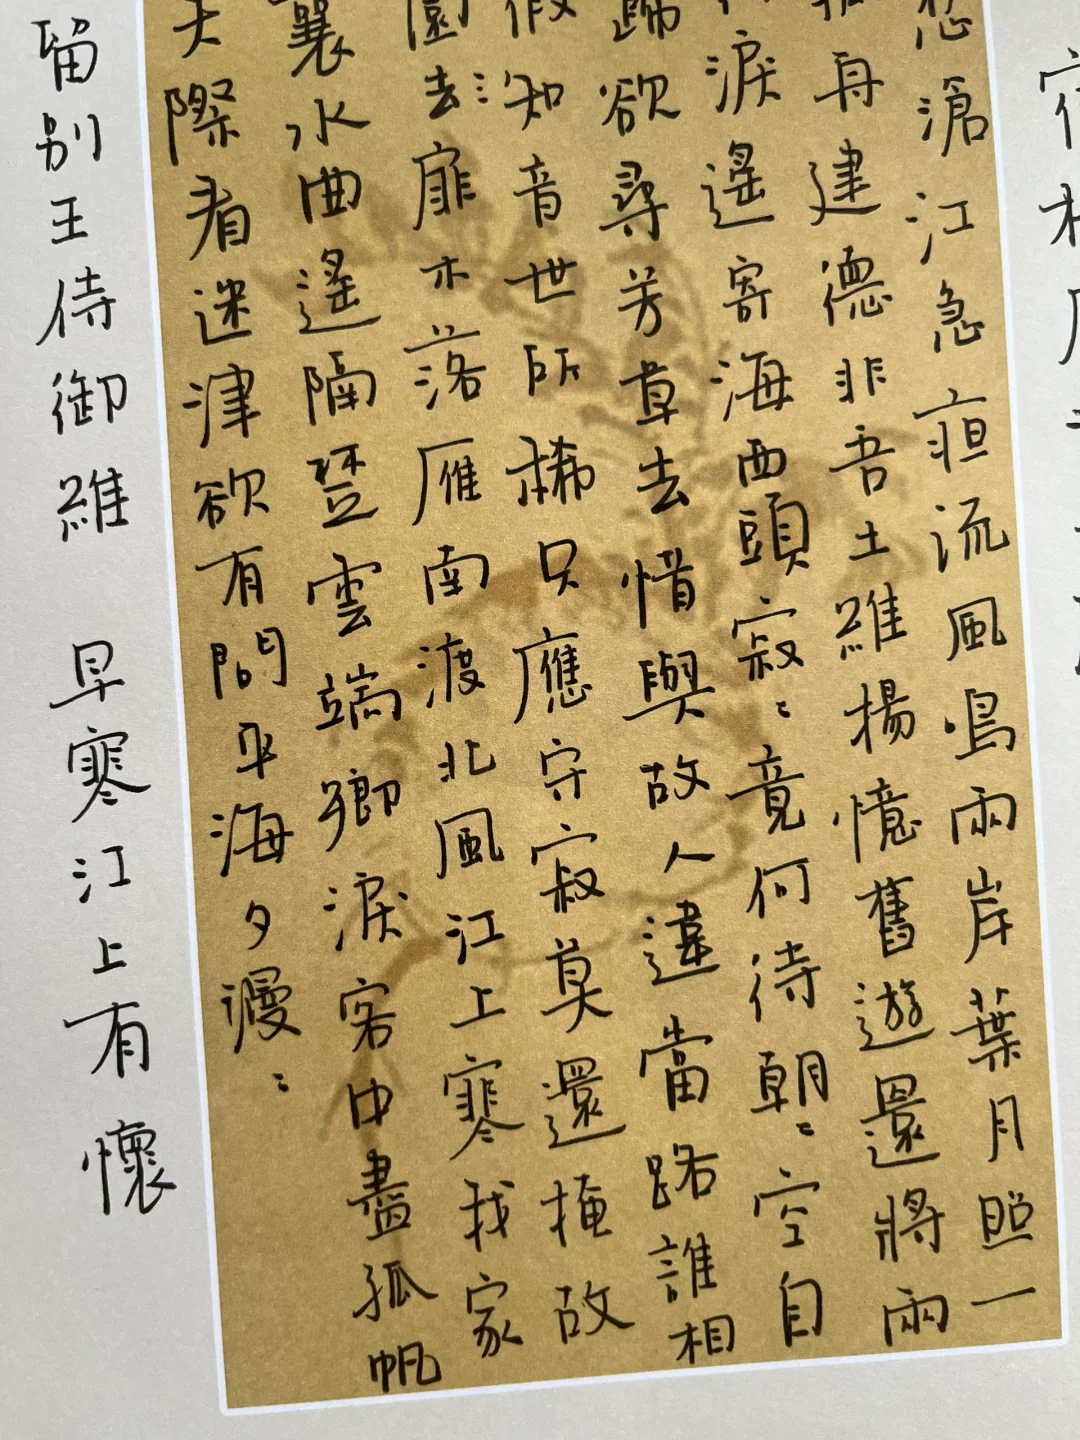 愁滄江急疸流風鳴兩岸葉月照一
孤舟建德非吾土維揚憶舊遊還將兩
淚遙寄海西頭寂〻竟何待朝〻空自
歸欲尋芳草去惜與故人違當路誰相
假知音世所稀只應守寂莫還掩故
園去〻扉木落雁南渡北風江上寒我家
襄水曲遙隔楚雲端鄉淚客中盡孤帆
天際看迷津欲有問平海夕漫〻
留別王侍御維 早寒江上有懷